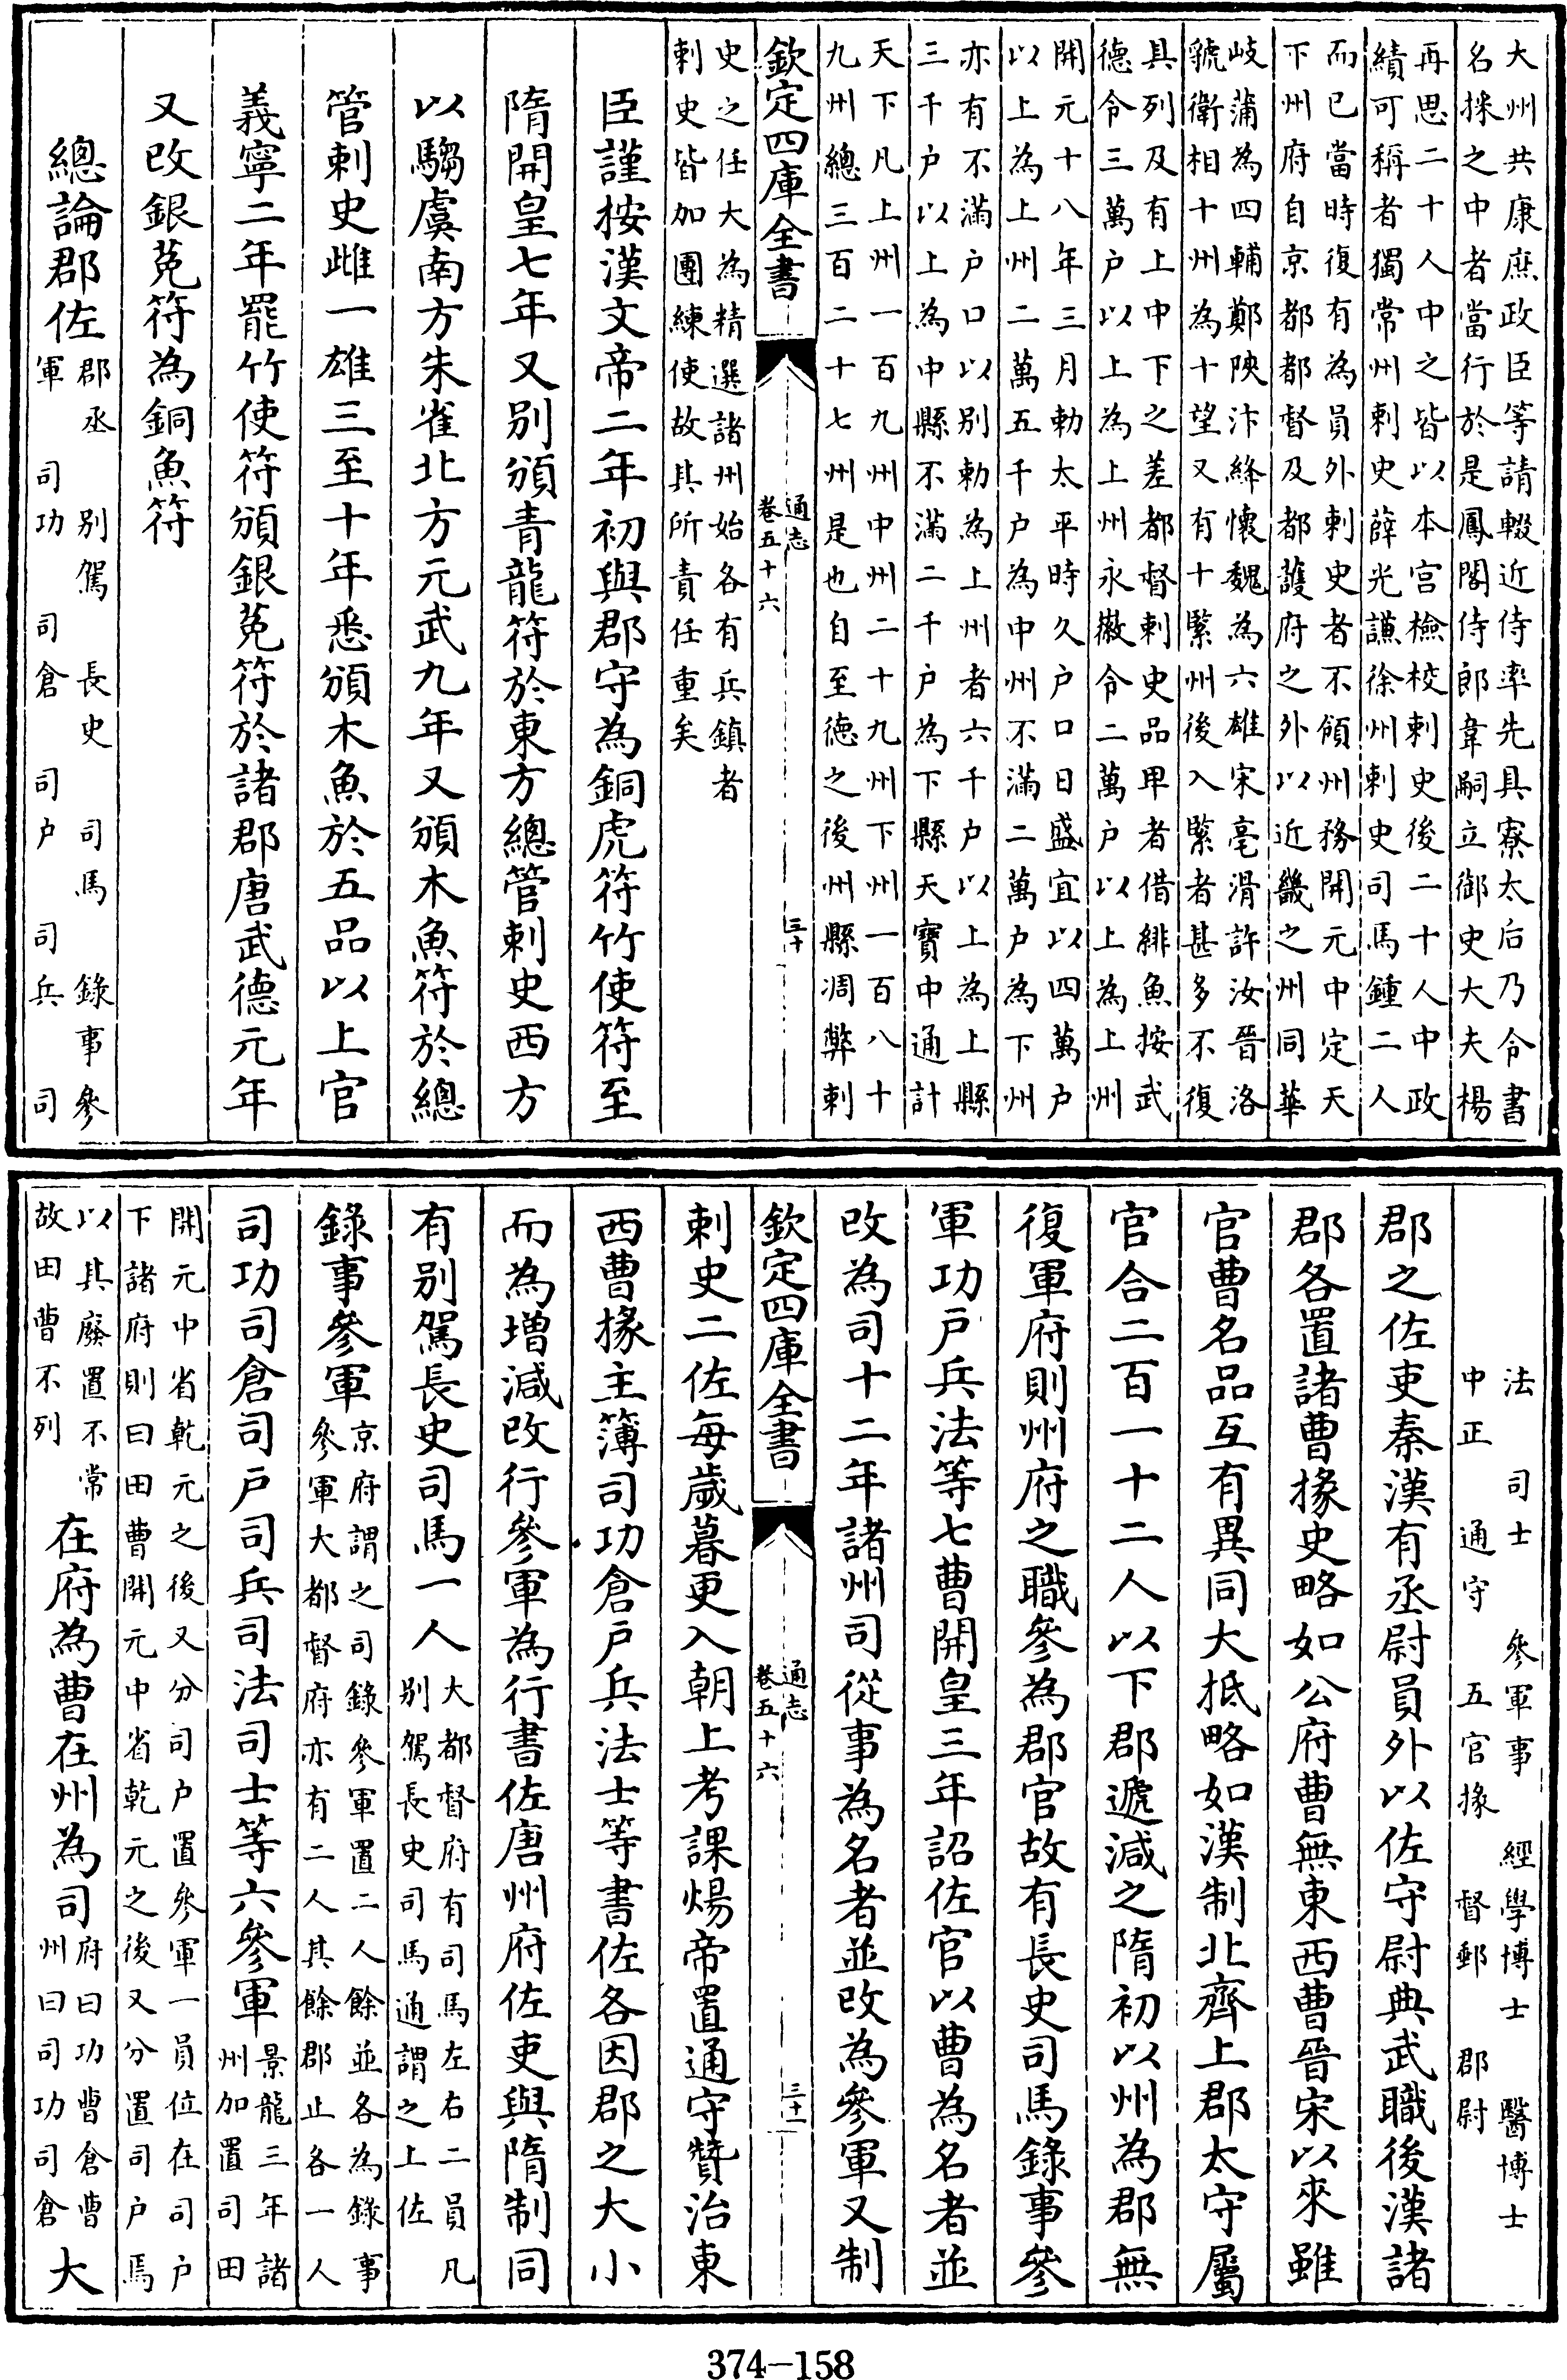 大州共康庶政臣等請輟近侍率先具寮太后乃令書
名探之中者當行於是鳳閣侍郎韋嗣立御史大夫楊
再思二十人中之皆以本宫檢校刺史後二十人中政
績可稱者獨常州刺史薛光謙徐州刺史司馬鍾二人
而已當時復有為員外刺史者不領州務開元中定天
下州府自京都都督及都護府之外以近畿之州同華
岐蒲為四輔鄭陜汴絳懷魏為六雄宋亳滑許汝晉洛
虢衛相十州為十望又有十緊州後入緊者甚多不復
具列及有上中下之差都督刺史品卑者借緋魚按武
德令三萬户以上為上州永徽令二萬户以上為上州
開元十八年三月勅太平時久户口日盛宜以四萬户
以上為上州二萬五千户為中州不滿二萬户為下州
亦有不滿户口以别勅為上州者六千户以上為上縣
三千户以上為中縣不滿二千户為下縣天寶中通計
天下凡上州一百九州中州二十九州下州一百八十
九州總三百二十七州是也自至德之後州縣凋弊刺
欽定四庫全書
通志
卷五十六
三十
史之任大為精選諸州始各有兵鎮者
刺史皆加團練使故其所責任重矣
臣謹按漢文帝二年初與郡守為銅虎符竹使符至
隋開皇七年又别頒青龍符於東方總管刺史西方
以騶虞南方朱雀北方元武九年又頒木魚符於總
管刺史雌一雄三至十年悉頒木魚於五品以上官
義寧二年罷竹使符頒銀菟符於諸郡唐武德元年
又改銀菟符為銅魚符
總論郡佐
郡丞 别駕 長史 司馬 錄事參
軍 司功 司倉 司户 司兵 司
法 司士 參軍事 經學博士 醫博士
中正 通守 五官掾 督郵 郡尉
郡之佐吏秦漢有丞尉員外以佐守尉典武職後漢諸
郡各置諸曹掾史略如公府曹無東西曹晉宋以來雖
官曹名品互有異同大抵略如漢制北齊上郡太守屬
官合二百一十二人以下郡遞減之隋初以州為郡無
復軍府則州府之職參為郡官故有長史司馬錄事參
軍功户兵法等七曹開皇三年詔佐官以曹為名者並
改為司十二年諸州司從事為名者並改為參軍又制
欽定四庫全書
通志
卷五十六
三十一
刺史二佐每歲暮更入朝上考課煬帝置通守贊治東
西曹掾主簿司功倉户兵法士等書佐各因郡之大小
而為增減改行參軍為行書佐唐州府佐吏與隋制同
有别駕長史司馬一人
大都督府有司馬左右二員凡
别駕長史司馬通謂之上佐
錄事參軍
京府謂之司錄參軍置二人餘並各為錄事
參軍大都督府亦有二人其餘郡止各一人
司功司倉司户司兵司法司士等六參軍
景龍三年諸
州加置司田
開元中省乾元之後又分司户置參軍一員位在司户
下諸府則曰田曹開元中省乾元之後又分置司户馬
以其廢置不常
故田曹不列
在府為曹在州為司
府曰功曹倉曹
州曰司功司倉
大
374-158